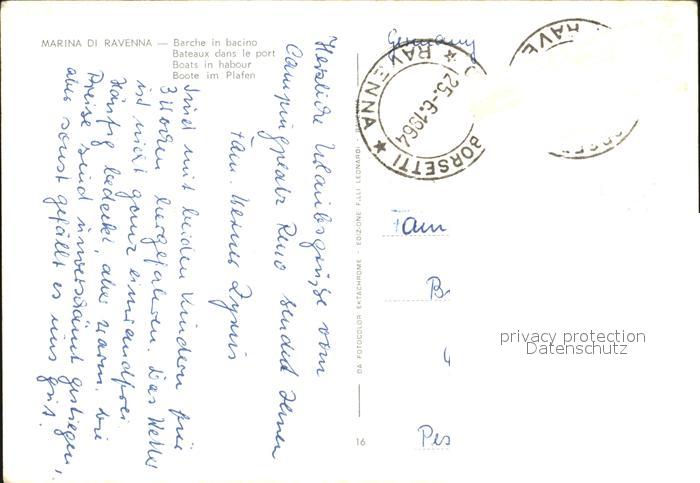 MARINA DI RAVENNA — Barche in bacino
Bateaux dans le port
Boats in habour
Boote im Plafen
Herzliche Urlaubsgrüße vom
Campingplatz Reno sendet Ihnen
Fam. Werner
Sind mit beiden Kindern für
3 Wochen hergefahren. Das Wetter
ist nicht ganz einwandfrei.
Häufig bedeckt, aber warm. Die
Preise sind unverschämt gestiegen,
aber sonst gefällt es uns gut.
DA FOTOCOLOR EKTACHROME - EDIZIONE F.LLI LEONARDI - RAVENNA
16
Germany
★ RAVENNA ★ BORSETTI
25.-6.1964
HAVE
Fam
B
Pes
privacy protection
Datenschutz